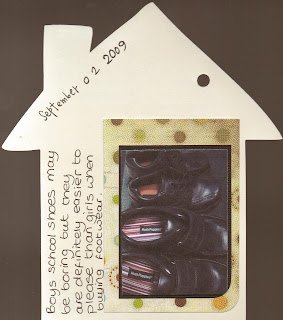 September 02 2009
Boys school shoes may
be boring but they
are definitely easier to
please than girls when
buying footwear.
Hush Puppies
Hush Puppies